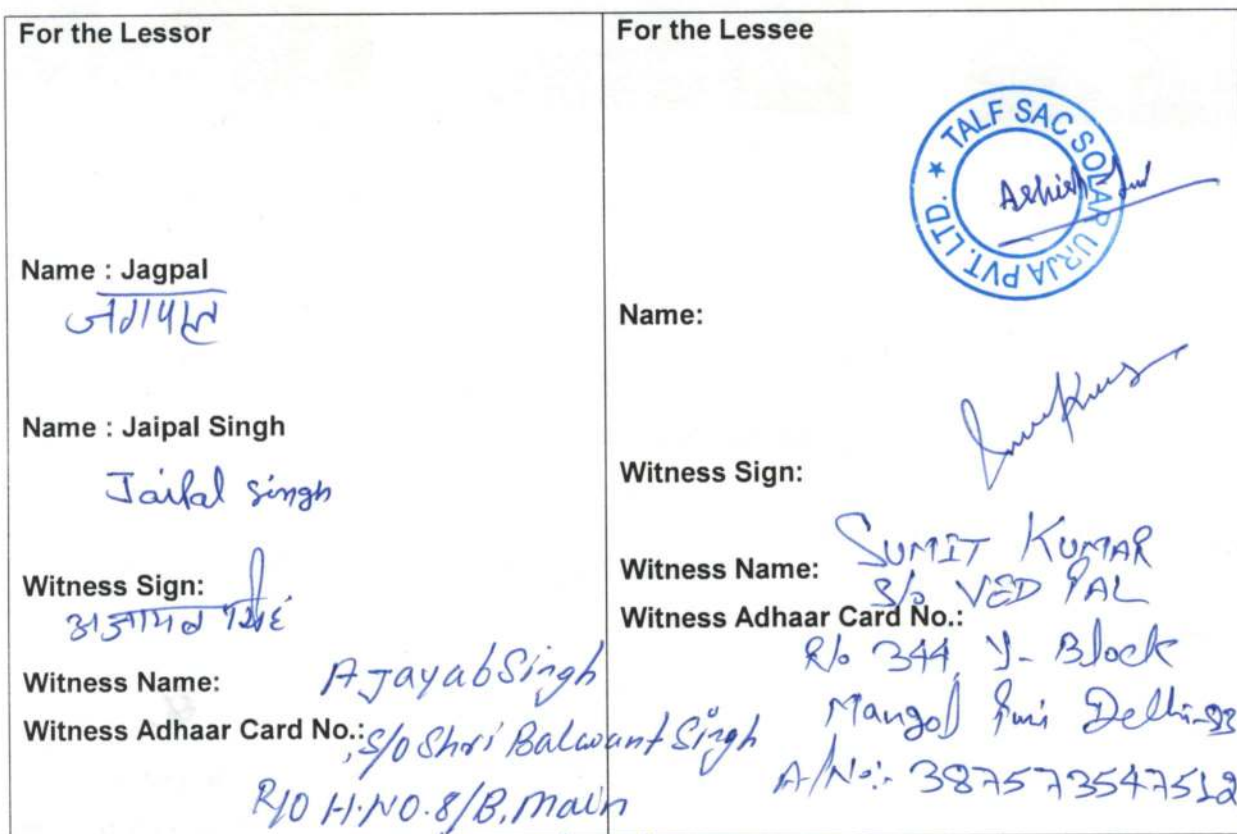 For the Lessor
Name : Jagpal
जगपाल
Name : Jaipal Singh
Jaipal Singh
Witness Sign:
Witness Name: Ajayab Singh
Witness Adhaar Card No.: S/o Shri Balwant Singh
R/O H.NO. 8/B, Main
For the Lessee
★ TALF SAC SOLAR URJA PVT. LTD.
Ashish
Name:
Witness Sign:
Witness Name: SUMIT KUMAR
S/o VED PAL
Witness Adhaar Card No.:
R/o 344, Y- Block
Mangol Puri Delhi-83
A/No:- 387573547512